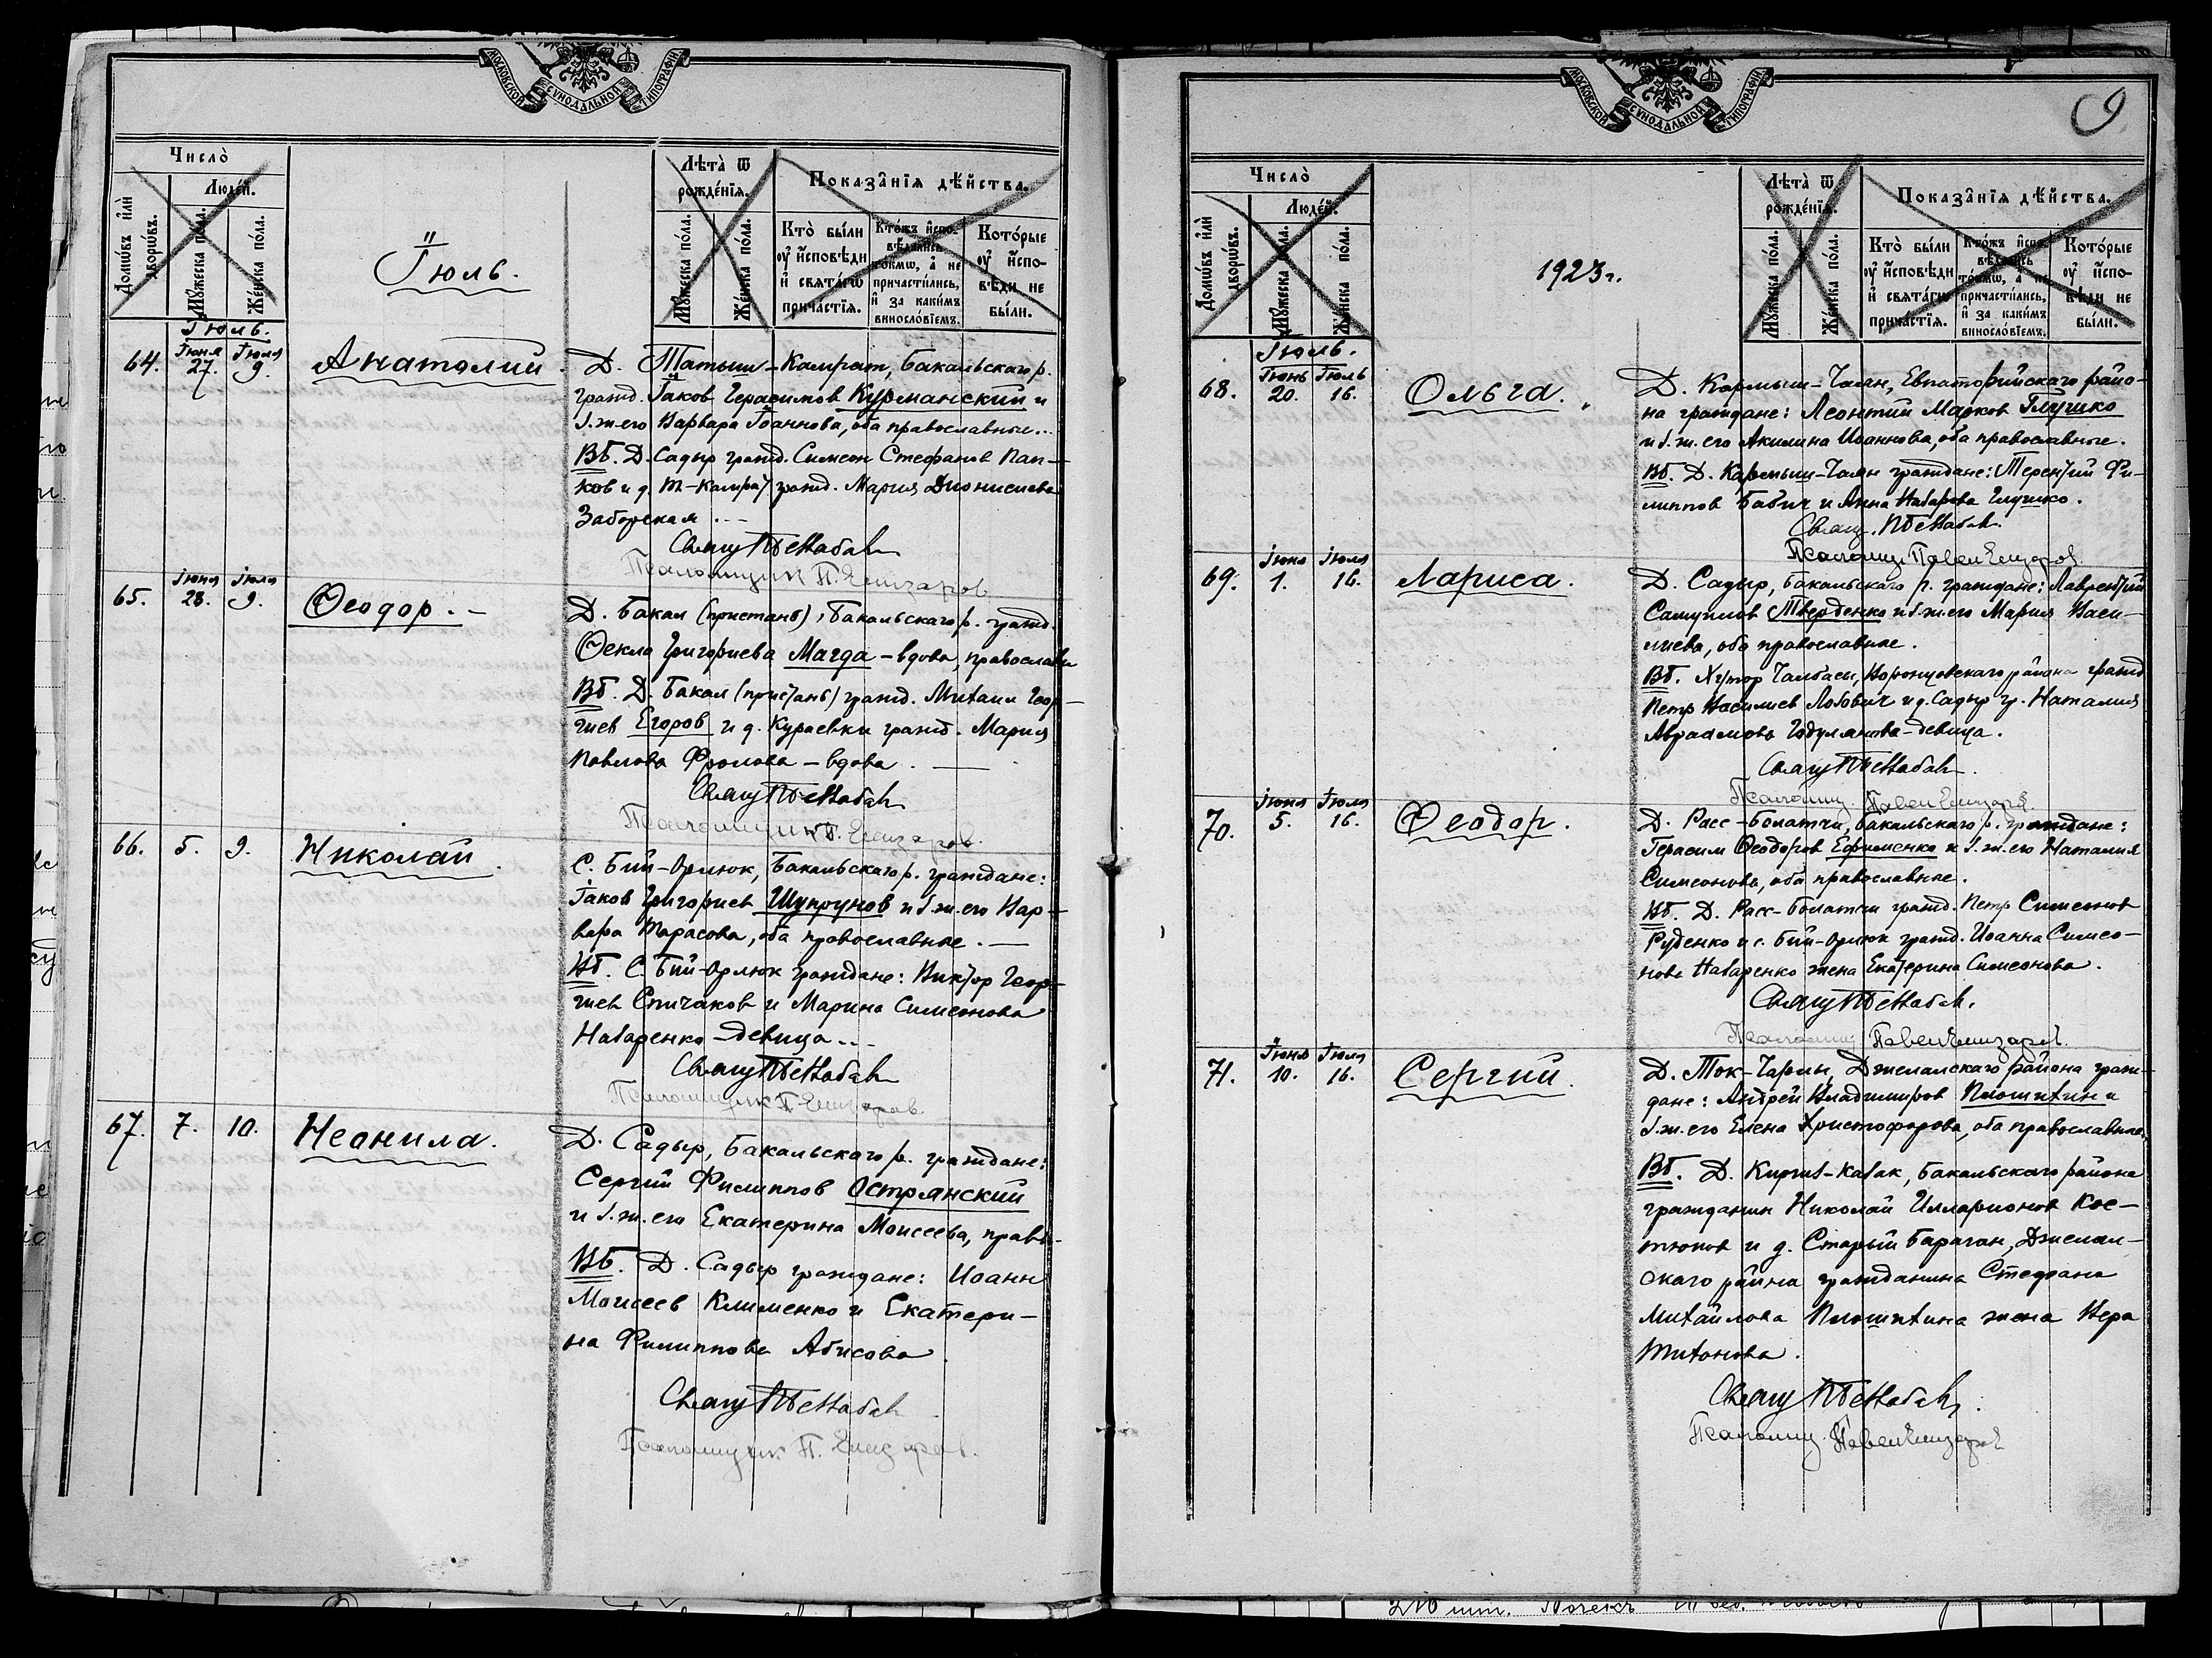 МОСКОВСКОЙ СѴНОДАЛЬНОЙ ТИПОГРАФІИ
Число̀
Домѡ́въ и҆лѝ дворѡ́въ.
Люде́й.
Мꙋ́жеска по́ла.
Же́нска по́ла.
Лѣта̀ ѿ рожде́нїѧ.
Мꙋ́жеска по́ла.
Же́нска по́ла.
Показа̑нїѧ дѣ́йства.
Кто̀ бы́ли ᲂу҆ и҆сповѣ́ди и҆ свѧта́гѡ причастїѧ.
Кто́жъ и҆сповѣ́дались то́кмѡ, а҆ не причасти́лись, и҆ за каки́мъ винослⷪ҇вїемъ.
Кото́рые ᲂу҆ и҆сповѣ́ди не бы́ли.
Іюль.
Іюль.
64. Іюня 27. Іюля 9. Анатолий.
Д. Татыш-Камрат, Бакальскаго р.
гражд. Іаков Герасимов Курманский и
з. ж. его Варвара Іоаннова, оба православные..
Вб. Д. Садыр гражд. Симеон Стефанов Пап-
ков и д. Т-Камрат гражд. Мария Дионисиева
Заборская.
Свящ
Псаломщик П. Елизаров
65. Іюня 28. Іюля 9. Феодор.-
Д. Бакал (пристань), Бакальскаго р. гражд.
Фекла Григориева Магда - вдова, православн
Вб. Д. Бакал (пристань) гражд. Михаил Геор-
гиев Егоров и д. Кураевки гражд. Мария
Павлова Фролова - вдова.
Свящ
Псаломщик П. Елизаров.
66. 5. 9. Николай.
С. Бий-Орлюк, Бакальскаго р. граждане:
Іаков Григориев Шупрунов и з. ж. его Вар-
вара Тарасова, оба православные. -
Вб. С. Бий-Орлюк граждане: Виктор Геор-
гиев Спичаков и Марина Симеонова
Назаренко - девица..
Свящ
Псаломщик П. Елизаров.
67. 7. 10. Неонила.
Д. Садыр, Бакальскаго р. граждане:
Сергий Филиппов Острянский
и з. ж. его Екатерина Моисеева, прав.
Вб. Д. Садыр граждане: Иоанн
Моисеев Клименко и Екатери-
на Филиппова Абисова.
Свящ
Псаломщик П. Елизаров.
МОСКОВСКОЙ СѴНОДАЛЬНОЙ ТИПОГРАФІИ
9
Число̀
Домѡ́въ и҆лѝ дворѡ́въ.
Люде́й.
Мꙋ́жеска по́ла.
Же́нска по́ла.
1923 г.
Лѣта̀ ѿ рожде́нїѧ.
Мꙋ́жеска по́ла.
Же́нска по́ла.
Показа̑нїѧ дѣ́йства.
Кто̀ бы́ли ᲂу҆ и҆сповѣ́ди и҆ свѧта́гѡ причастїѧ.
Кто́жъ и҆сповѣ́дались то́кмѡ, а҆ не причасти́лись, и҆ за каки́мъ винослⷪ҇вїемъ.
Кото́рые ᲂу҆ и҆сповѣ́ди не бы́ли.
Іюль.
68. Іюнь 20. Іюль 16. Ольга.
Д. Кармыш-Чаян, Евпаторийскаго райо-
на граждане: Леонтий Марков Глушко
и з. ж. его Акилина Иоаннова, оба православные.
Вб. Д. Кармыш-Чаян граждане: Терентий Фи-
липпов Бабич и Анна Назарова Глушко.
Свящ.
Псаломщ. Павел Елизаров
69. Іюня 1. Іюля 16. Лариса.
Д. Садыр, Бакальскаго р. граждане: Лаврентий
Самуилов Тверденко и з. ж. его Мария Васи-
лиева, оба православные.
Вб. Хутор Чалбасы, Воронцовскаго района гражд
Петр Василиев Лобович и д. Садыр гр. Наталия
Авраамова - девица.
Свящ
Псаломщ. Павел Елизаров.
70. Іюня 5. Іюля 16. Феодор.
Д. Расс-Болатчи, Бакальскаго р. граждане:
Герасим Феодоров Ефименко и з. ж. его Наталия
Симеонова, оба православные.
Вб. Д. Расс-Болатчи гражд. Петр Симеонов
Руденко и с. Бий-Орлюк гражд. Иоанна Симео-
нова Назаренко жена Екатерина Симеонова.
Свящ
Псаломщ Павел Елизаров.
71. Іюня 10. Іюля 16. Сергий.
Д. Ток-Чарлы, Джелалскаго района граж-
дане: Андрей Владимиров Плошихин и
з. ж. его Елена Христофорова, оба православные.
Вб. Д. Киргиз-Казак, Бакальскаго района
гражданин Николай Илларионов Кос-
тюков и д. Старый Бараган, Джелал-
скаго района гражданина Стефана
Михайлова Плошихина жена Вера
Титонова.
Свящ
Псаломщ. Павел Елизаров